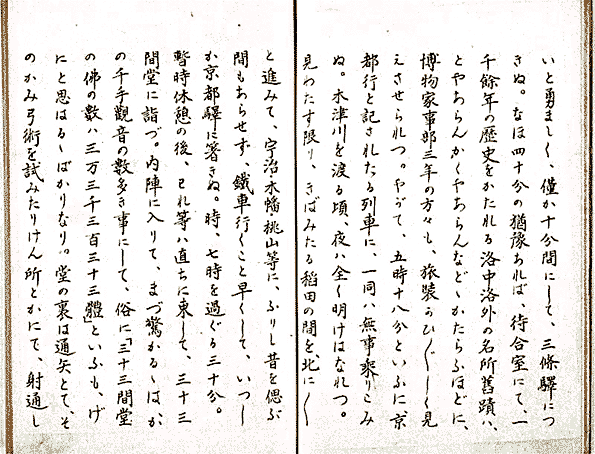 いと勇ましく、僅か十分間にして、三條驛につ
きぬ。なほ四十分の猶豫あれば、待合室にて、一
千餘年の歴史をかたれる洛中洛外の名所舊蹟ハ、
とやあらんかくやあらんなどゝかたらふほどに、
博物家事部三年の方々も、旅裝かひ〴〵しく見
えさせられつ。やがて、五時十八分といふに京
都行と記されたる列車に、一同ハ無事乘りこみ
ぬ。木津川を渡る頃、夜ハ全く明けはなれつ。
見わたす限り、きばみたる稻田の間を、北に〳〵
と進みて、宇治木幡桃山等に、ふりし昔を偲ぶ
間もあらせず、鐵車行くこと早くして、いつし
か京都驛に着きぬ。時、七時を過ぐる三十分。
暫時休憩の後、われ等ハ直ちに東して、三十三
間堂に詣づ。内陣に入りて、まづ驚かるゝは、か
の千手觀音の數多き事にして、俗に「三十三間堂
の佛の數ハ三万三千三百三十三體」といふも、げ
にと思はるゝばかりなり。堂の裏は通矢とて、そ
のかみ弓術を試みたりけん所とかにて、射通し